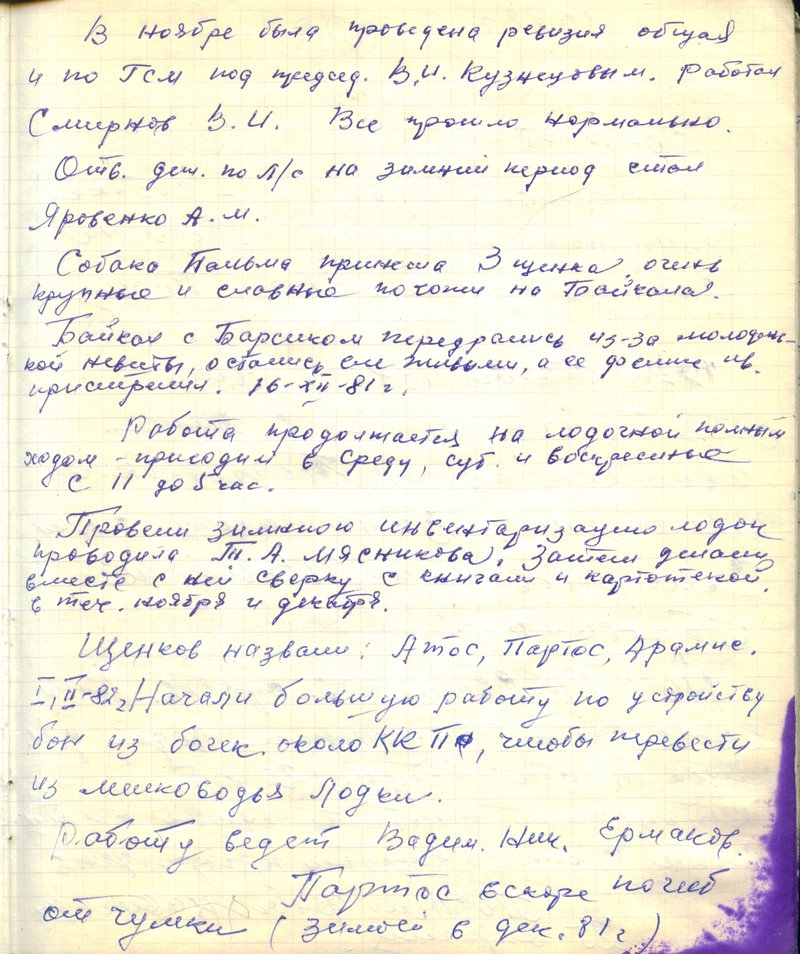 В ноябре была проведена ревизия общая
и по ГСМ под председ. В.И. Кузнецовым. Работал
Смирнов В.И. Все прошло нормально.
Отв. деж. по л/с на зимний период стал
Яровенко А.М.
Собака Пальма принесла 3 щенка, очень
крупные и славные похожи на Байкала.
Байкал с Барсиком передрались из-за молодень-
кой невесты, остались еле живыми, а ее
присмирели. 16-XII-81 г.
Работа продолжается на лодочной полным
ходом - приходим в среду, суб. и воскресенье
с 11 до 5 час.
Провели зимнюю инвентаризацию лодок
проводила Т.А. Мясникова. Затем делали
вместе с ней сверку с книгами и картотекой
в теч. ноября и декабря.
Щенков назвали: Атос, Партос, Арамис.
I, II-82 г. Начали большую работу по устройству
бон из бочек около ККП, чтобы перевести
из мелководья лодки.
Работу ведет Вадим. Ник. Ермаков.
Партос вскоре погиб
от чумки (зимой в дек. 81 г)